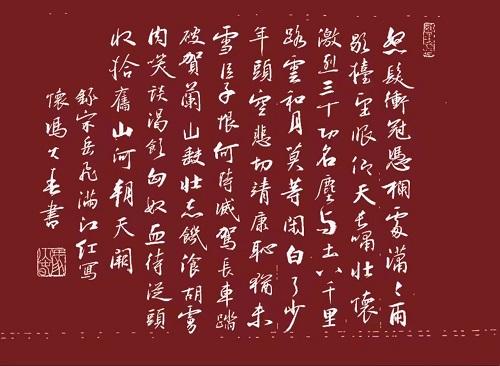 怒髮衝冠憑欄處瀟〻雨
歇擡望眼仰天長嘯壯懷
激烈三十功名塵与土八千里
路雲和月莫等閑白了少
年頭空悲切靖康恥猶未
雪臣子恨何時滅駕長車踏
破賀蘭山缺壯志饑湌胡虜
肉笑談渴飲匈奴血待從頭
收拾舊山河朝天闕
錄宋岳飛滿江紅寫
懷馮書